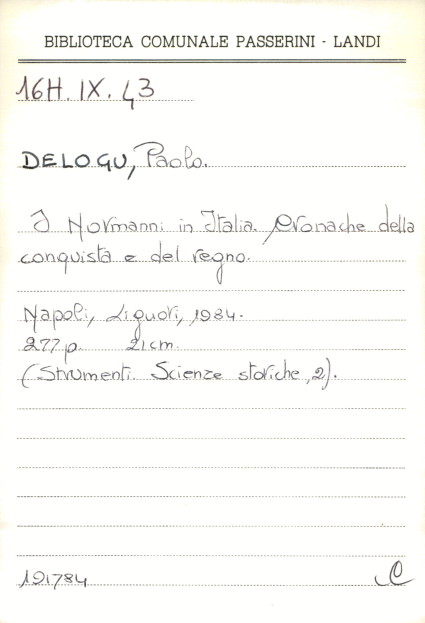 BIBLIOTECA COMUNALE PASSERINI - LANDI
16H. IX. 43
DELOGU, Paolo.
I Normanni in Italia. Cronache della
conquista e del regno.
Napoli, Liguori, 1984.
277 p. 21 cm.
(Strumenti. Scienze storiche, 2).
191784